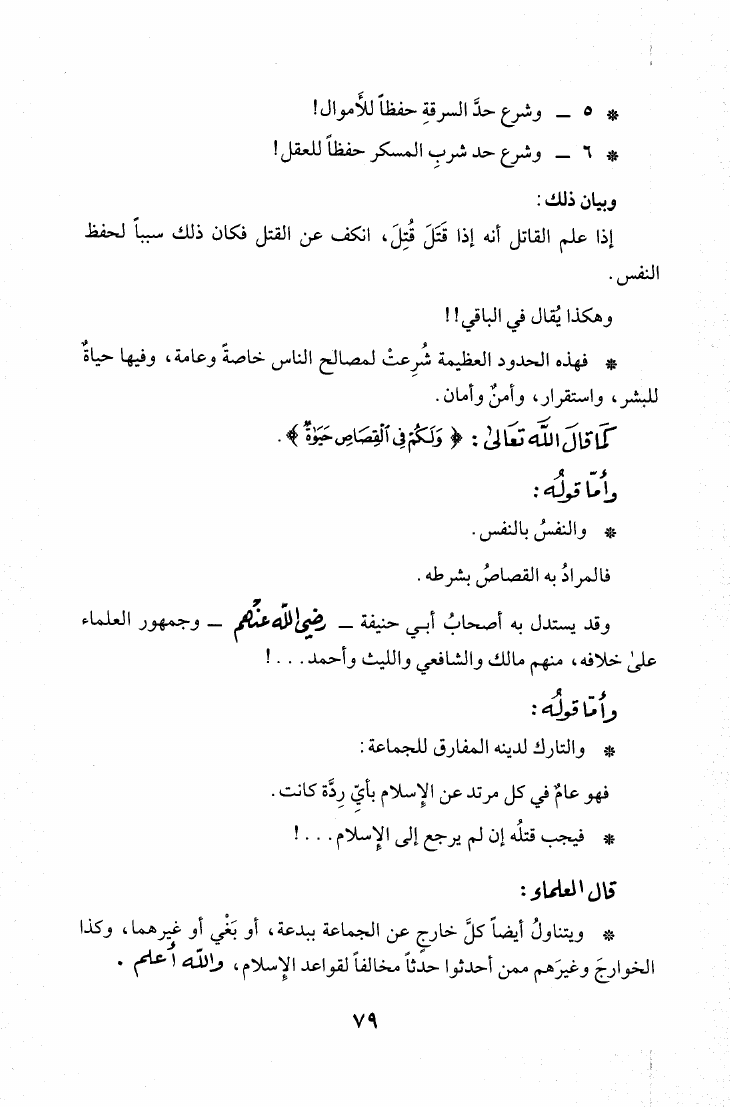 * ٥ ــ وشرع حدَّ السرقةِ حفظاً للأَموال!
* ٦ ــ وشرع حد شربِ المسكر حفظاً للعقل!
وبيان ذلك:
إذا علم القاتل أنه إذا قَتَلَ قُتِلَ، انكف عن القتل فكان ذلك سبباً لحفظ
النفس.
وهكذا يُقال في الباقي!!
* فهذه الحدود العظيمة شُرِعتْ لمصالح الناس خاصةً وعامة، وفيها حياةٌ
للبشر، واستقرار، وأمنٌ وأمان.
كَمَا قَالَ اللَّه تَعَالَىٰ: ﴿ وَلَكُمْ فِي ٱلْقِصَاصِ حَيَوٰةٌ ﴾.
وأمّا قولُه:
* والنفسُ بالنفس.
فالمرادُ به القصاصُ بشرطه.
وقد يستدل به أصحابُ أبي حنيفة ــ رضي الله عنهم ــ وجمهور العلماء
علىٰ خلافه، منهم مالك والشافعي والليث وأحمد...!
وأمّا قولُه:
* والتارك لدينه المفارق للجماعة:
فهو عامٌ في كل مرتد عن الإِسلام بأيِّ رِدَّة كانت.
* فيجب قتلُه إن لم يرجع إلى الإِسلام...!
قال العلماء:
* ويتناولُ أيضاً كلَّ خارجٍ عن الجماعة ببدعة، أو بَغْي أو غيرهما، وكذا
الخوارجَ وغيرَهم ممن أحدثوا حدَثاً مخالفاً لقواعد الإِسلام، والله أعلم.
٧٩